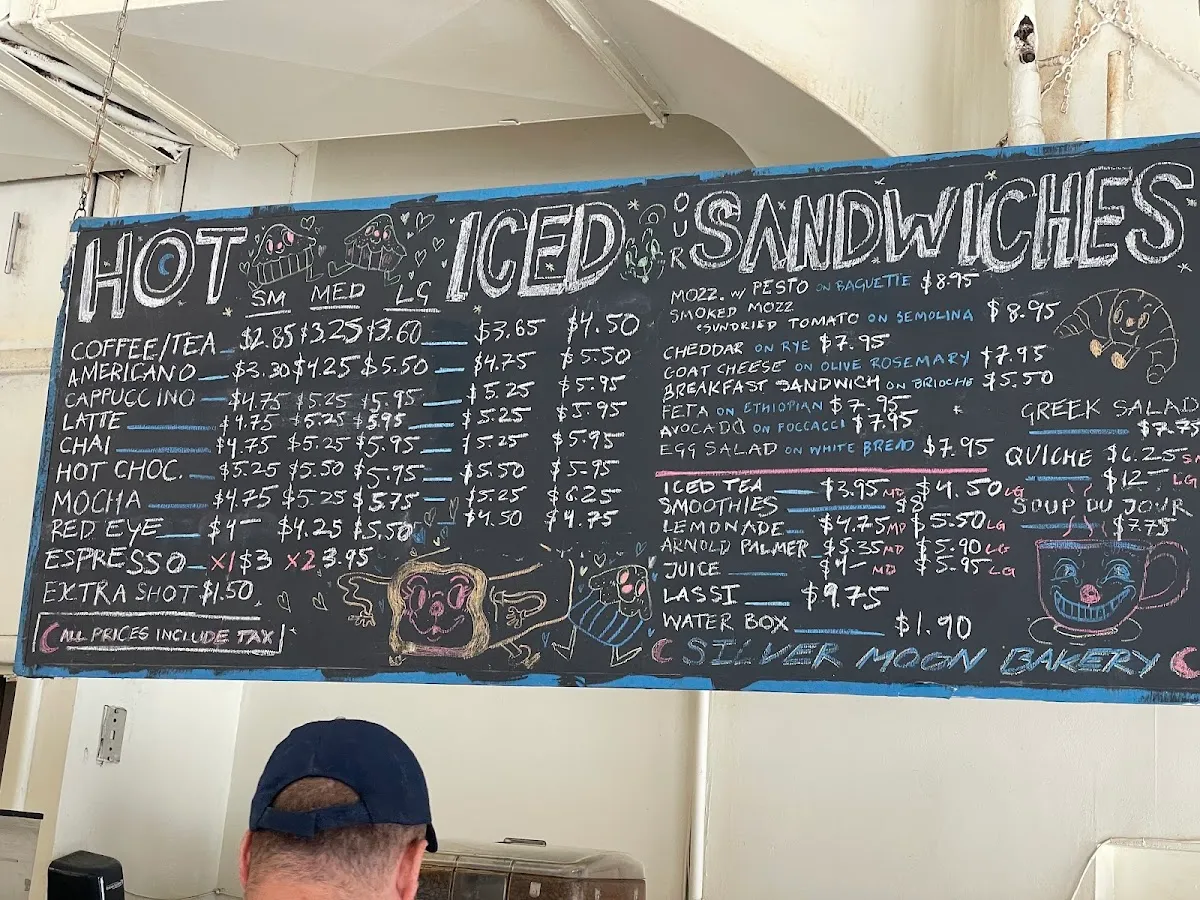 HOT
SM MED LG
COFFEE/TEA $2.85 $3.25 $3.60
AMERICANO $3.30 $4.25 $5.50
CAPPUCCINO $4.75 $5.25 $5.95
LATTE $4.75 $5.25 $5.95
CHAI $4.75 $5.25 $5.95
HOT CHOC. $5.25 $5.50 $5.95
MOCHA $4.75 $5.25 $5.75
RED EYE $4— $4.25 $5.50
ESPRESSO X1 $3 X2 3.95
EXTRA SHOT $1.50
ALL PRICES INCLUDE TAX
ICED
$3.65 $4.50
$4.75 $5.50
$5.25 $5.95
$5.25 $5.95
5.25 $5.95
$5.50 $5.95
$5.25 $6.25
$4.50 $4.75
OUR SANDWICHES
MOZZ. W/ PESTO ON BAGUETTE $8.95
SMOKED MOZZ
SUNDRIED TOMATO ON SEMOLINA $8.95
CHEDDAR ON RYE $7.95
GOAT CHEESE ON OLIVE ROSEMARY $7.95
BREAKFAST SANDWICH ON BRIOCHE $5.50
FETA ON ETHIOPIAN $7.95
AVOCADO ON FOCCACCI $7.95
EGG SALAD ON WHITE BREAD $7.95
ICED TEA $3.95 MD $4.50 LG
SMOOTHIES $8
LEMONADE $4.75 MD $5.50 LG
ARNOLD PALMER $5.35 MD $5.90 LG
JUICE $4— MD $5.95 LG
LASSI $9.75
WATER BOX $1.90
GREEK SALAD
QUICHE $6.25 SM
$12— LG
SOUP DU JOUR
$7.75
SILVER MOON BAKERY